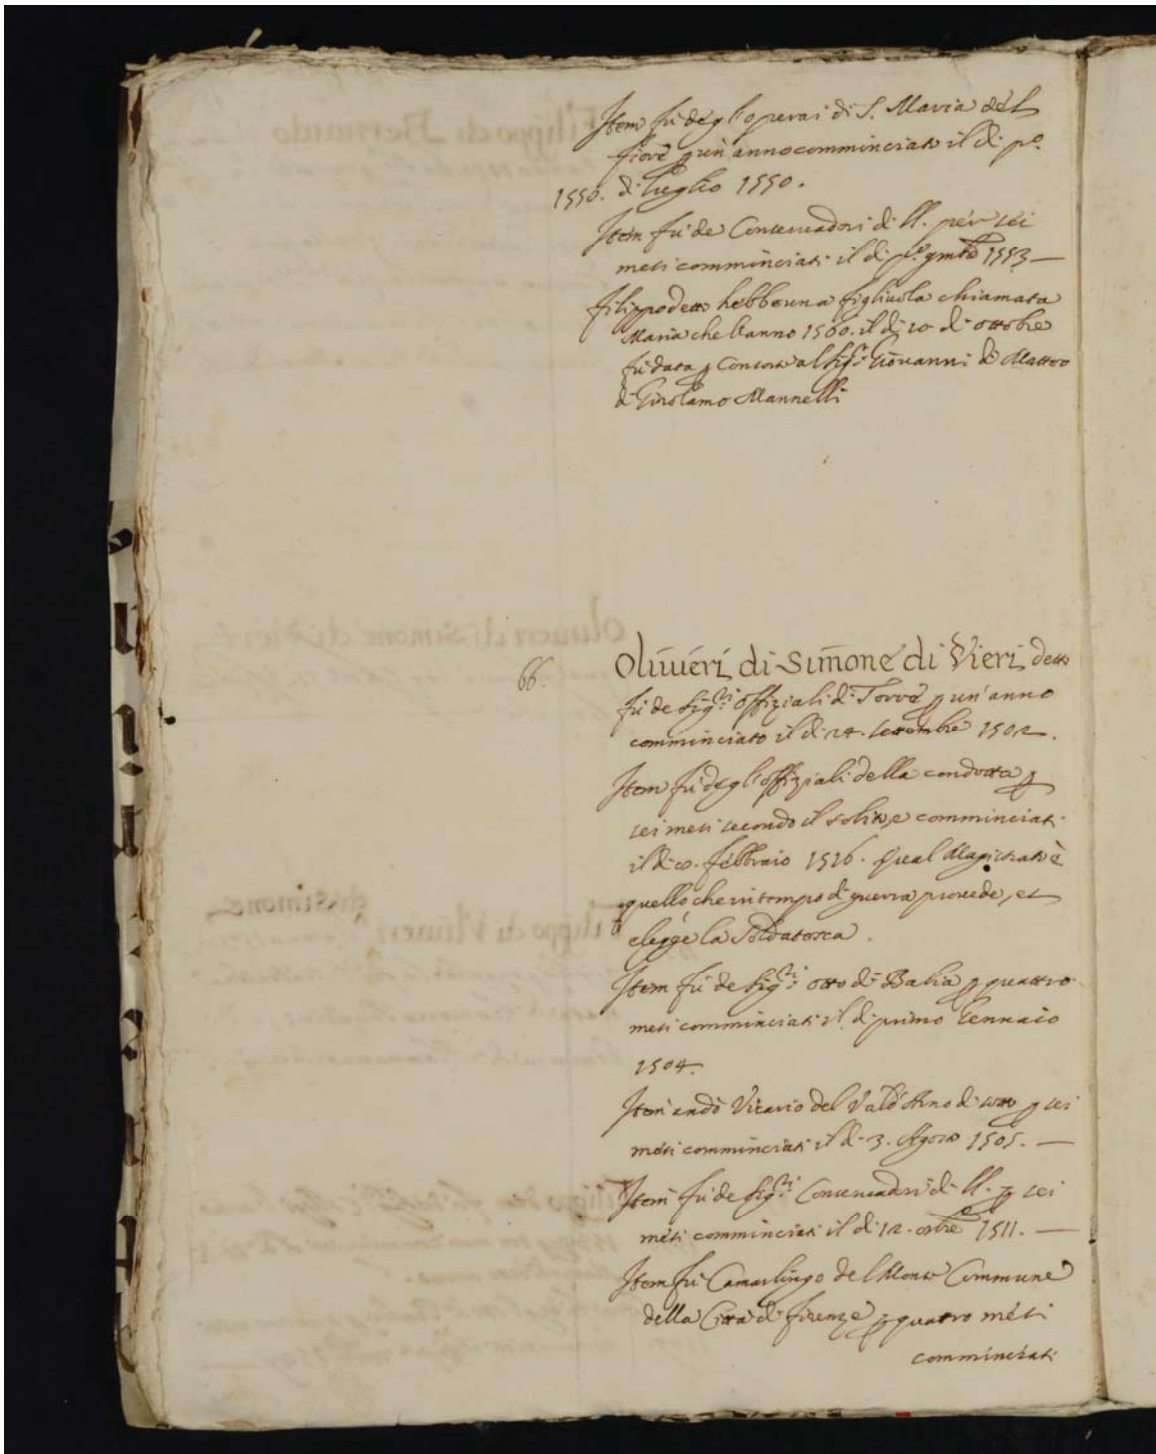 Item fu degl'operai di S. Maria del
fiore p un'anno comminciato il di p.o
1550. di luglio 1550.
Item fu de Conservadori di ll. per sei
mesi comminciati il di p.o 9mbre 1553 —
filippo detto hebbe una figliuola chiamata
Maria che l'anno 1560. il di 20 di ottobre
fu data p Consorte al Sig.r Giovanni di Matteo
di Girolamo Mannelli
66. Oliuieri di Simone di Vieri detto
fu de Sig.ri offiziali di Torre p un'anno
comminciato il di 24. settembre 1502.
Item fu degl'offiziali della condotta p
sei mesi secondo il solito, e comminciati
il di 8. febbraio 1526. Qual Magistrato è
quello, che in tempo di guerra provede, et
elegge la Soldatesca.
Item fu de Sig.ri otto di Balia p quattro
mesi comminciati il di primo Gennaio
1504.
Item andò Vicario del Vald'Arno di sotto p sei
mesi comminciati il di 3. Agosto 1505. —
Item fu de Sig.ri Conservadori di ll. p sei
mesi comminciati il di 12. ottbre 1511. —
Item fu Camarlingo del Monte Commune
della Città di firenze p quattro mesi
comminciati